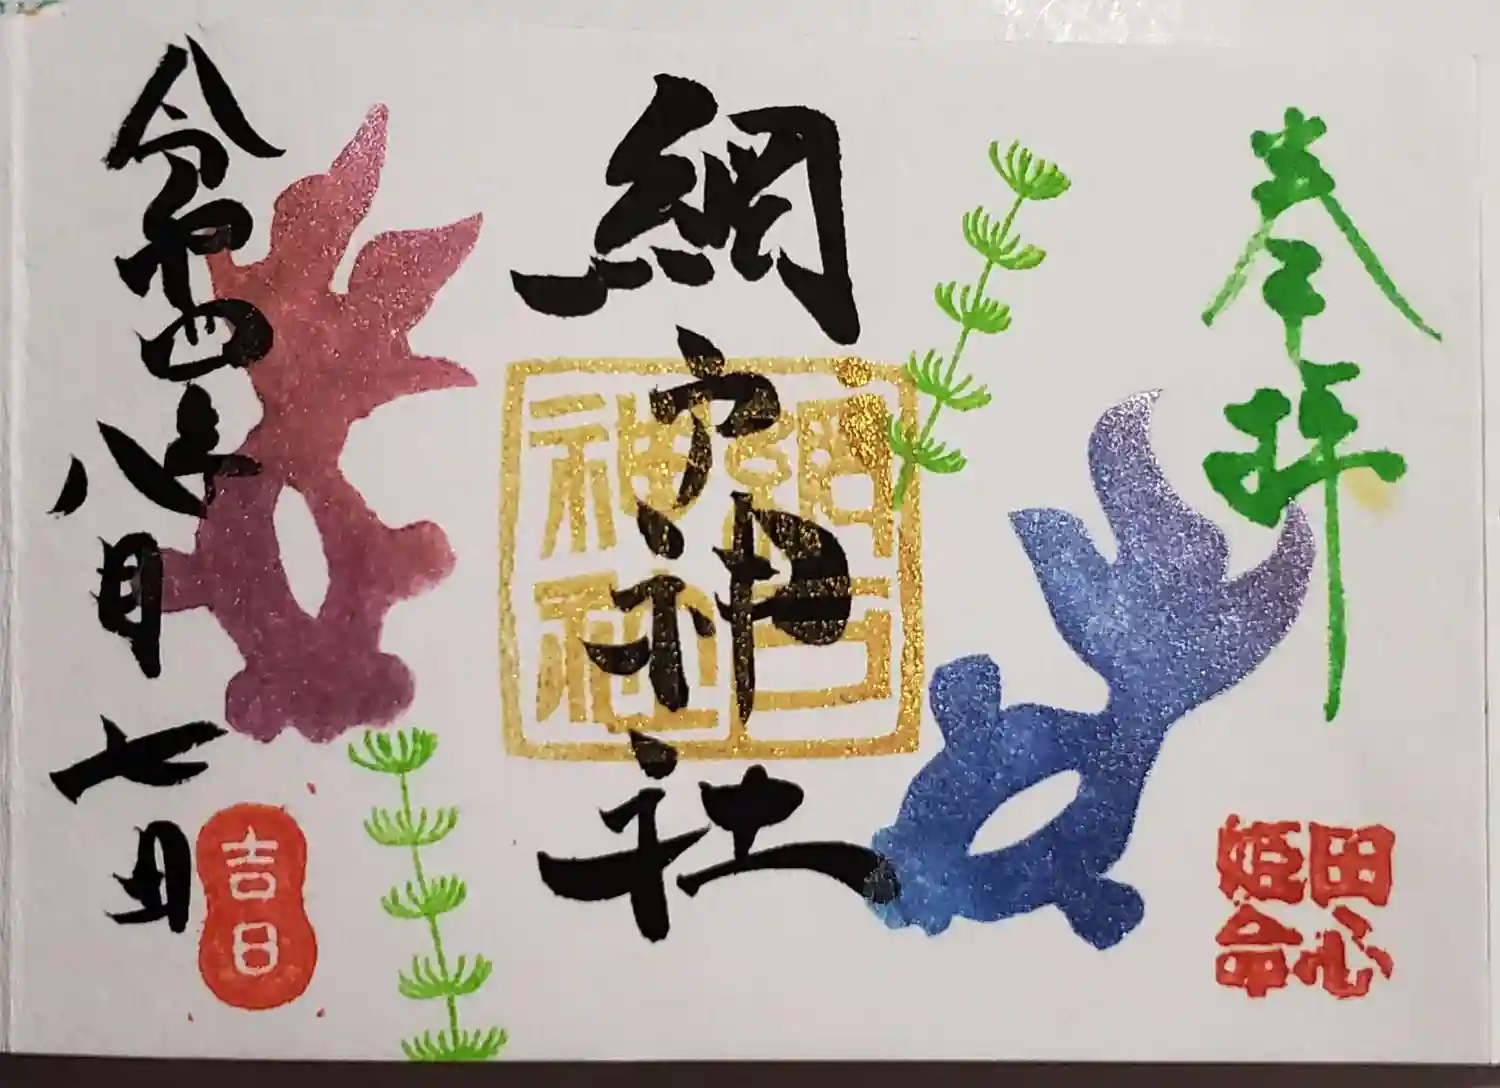 奉拝
田心
姫命
網戸神社
網戸
神社
令和四年八月七日
吉日